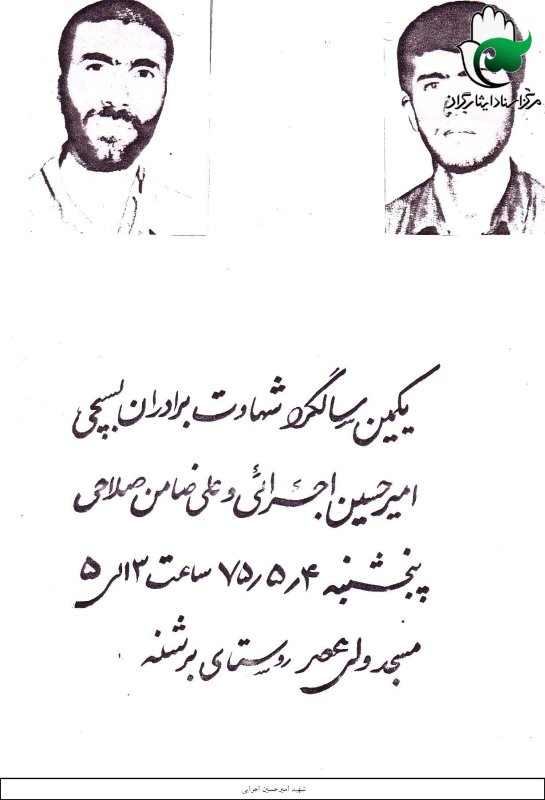 مرکز اسناد ایثارگران
یکمین سالگرد شهادت برادران بسیجی
امیرحسین اجرائی و علی ضامن صلاحی
پنجشنبه ۷۵٫۵٫۴ ساعت ۳ الی ۵
مسجد ولی عصر روستای برشنه
شهید امیرحسین اجرایی